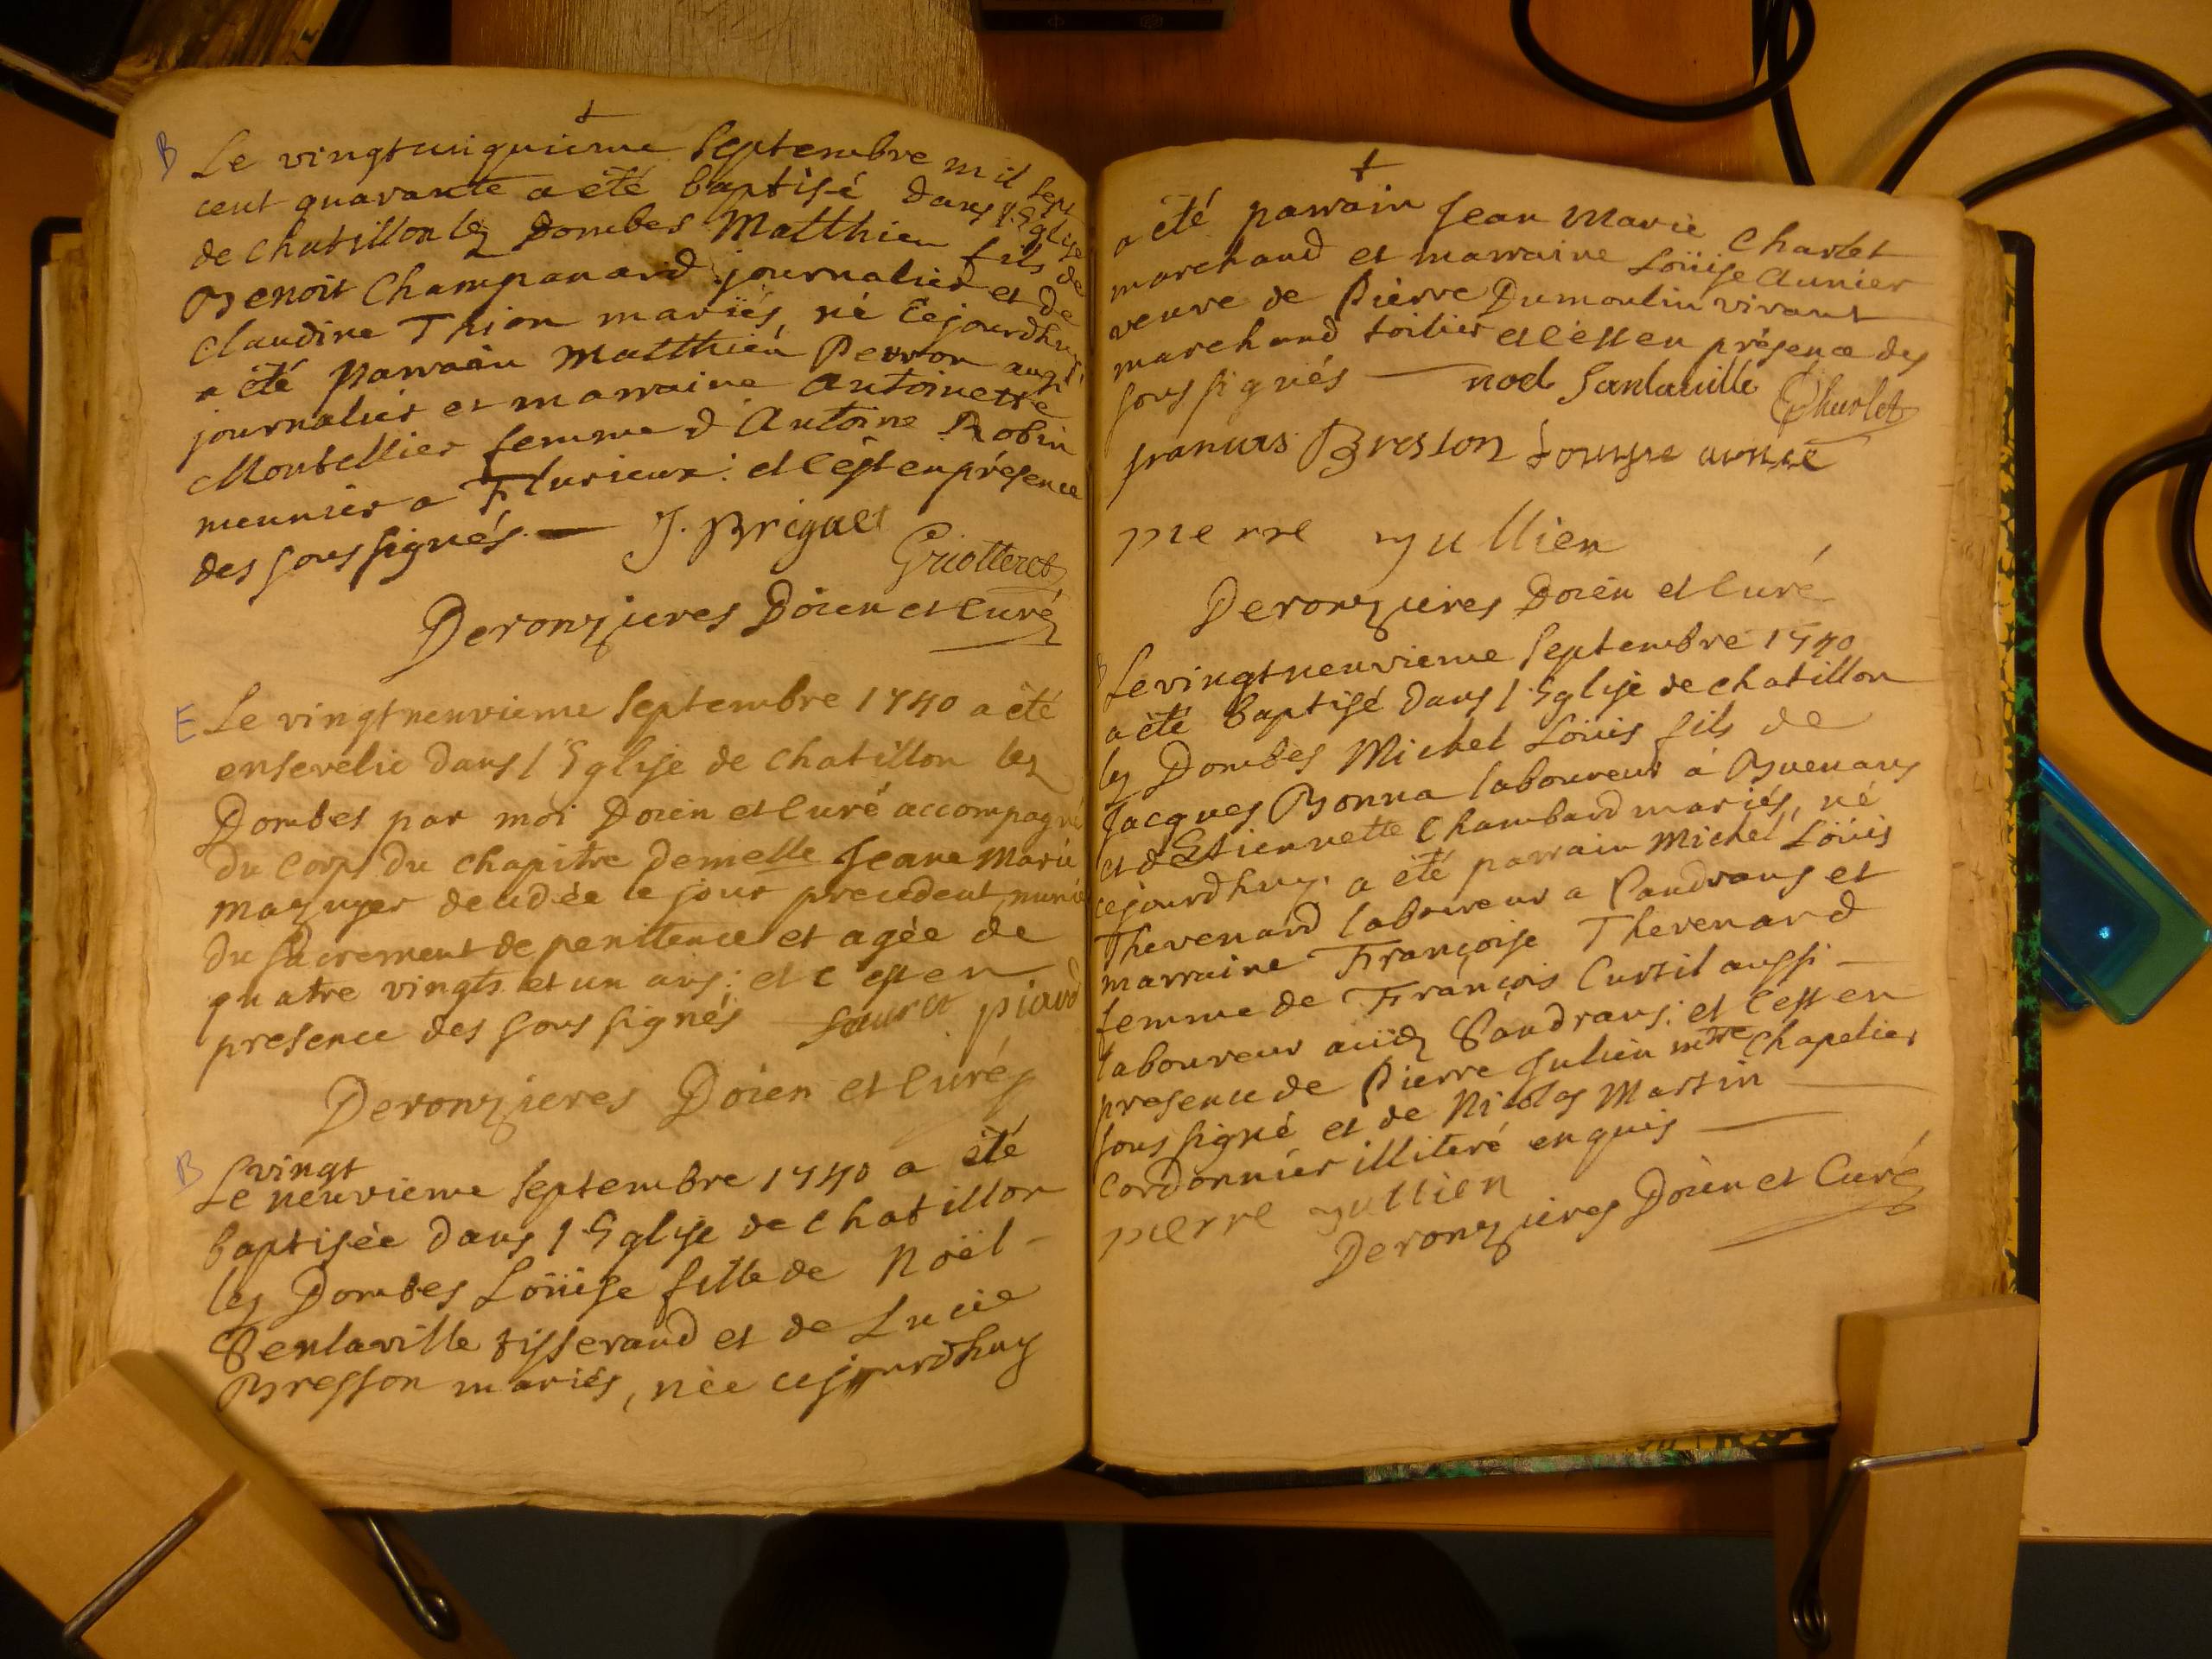 B Le vingtcinquiéme Septembre mil sept
cent quarante a été baptisé dans l'Eglise
de Chatillon les Dombes Matthieu fils de
Benoit Champanard journalier et de
Claudine Thion mariés, né cejourdhuy
a été parrain Matthieu Perron aussi
journalier et marraine Antoinette
Montellier femme d'Antoine Robin
meunier a Flurieux: et c'est en présence
des soussignés. — J. Briguet
Griotteret
Deronzieres Doien et Curé
E Le vingtneuvieme Septembre 1740 a été
ensevelie dans l'Eglise de Chatillon les
Dombes par moi Doien et Curé accompagné
du Corps du Chapitre demelle Jeane Marie
Mazuyer decedée le jour precedent, munie
du Sacrement de penitence et agée de
quatre vingts et un ans: et c'est en
presence des soussignés Sauret piaud
Deronzieres Doien et Curé
B vingt
Le neuvieme Septembre 1740 a été
baptisée dans l'Eglise de Chatillon
les Dombes Loüise fille de Noël
Senlaville tisserand et de Lucie
Bresson mariés, née cejourdhuy
a été parrain Jean Marie Charlet
marchand et marraine Loüise Aunier
veuve de Pierre Dumoulin vivant
marchand toilier et c'est en présence des
soussignés — noel Sanlaville Charlet
francois Breston Louise
pierre jullien
Deronzieres Doien et Curé
B Le vingtneuvieme Septembre 1740
a été baptisé dans l'Eglise de Chatillon
les Dombes Michel Loüis fils de
Jacques Bonna laboureur à Buenans
et d'Etiennette Chambard mariés, né
cejourdhuy. a été parrain Michel Loüis
Thevenard laboureur a Sandrans et
marraine Françoise Thevenard
femme de François Curtil aussi
laboureur audt Sandrans: et c'est en
presence de Pierre Julien mtre Chapelier
soussigné et de Nicolas Martin
Cordonnier illiteré enquis
pierre jullien
Deronzieres Doien et Curé